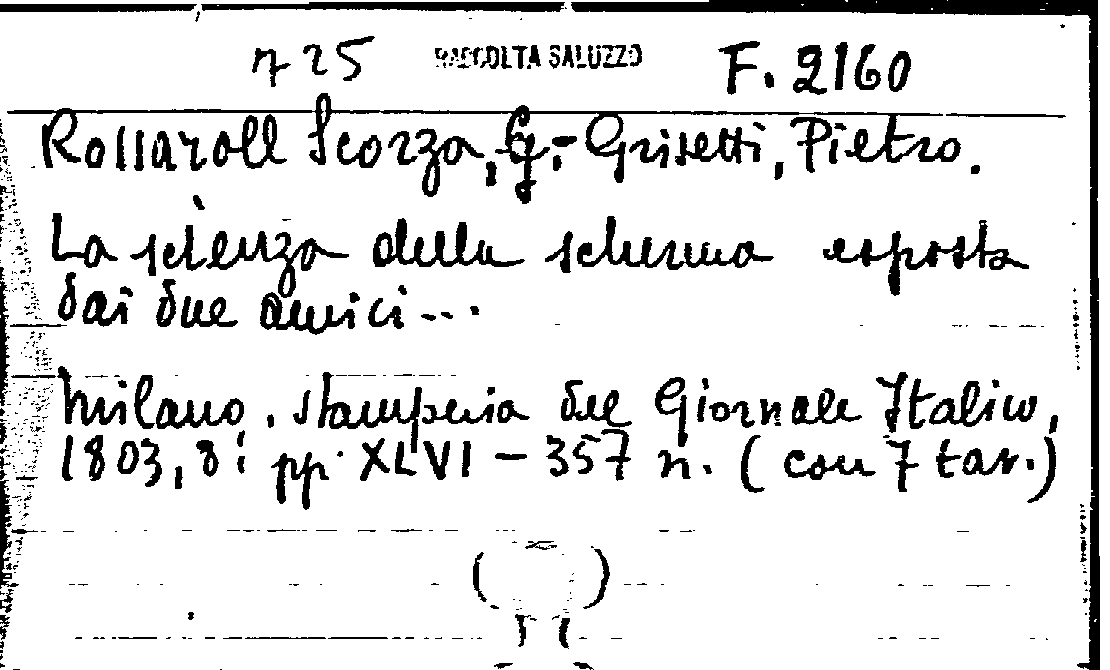 725 RACCOLTA SALUZZO F. 2160
Rossaroll Scorza, G.- Grisetti, Pietro.
La scienza della scherma esposta
dai due amici...
Milano. Stamperia del Giornale Italico,
1803, 8° pp. XLVI - 357 n. (con 7 tav.)